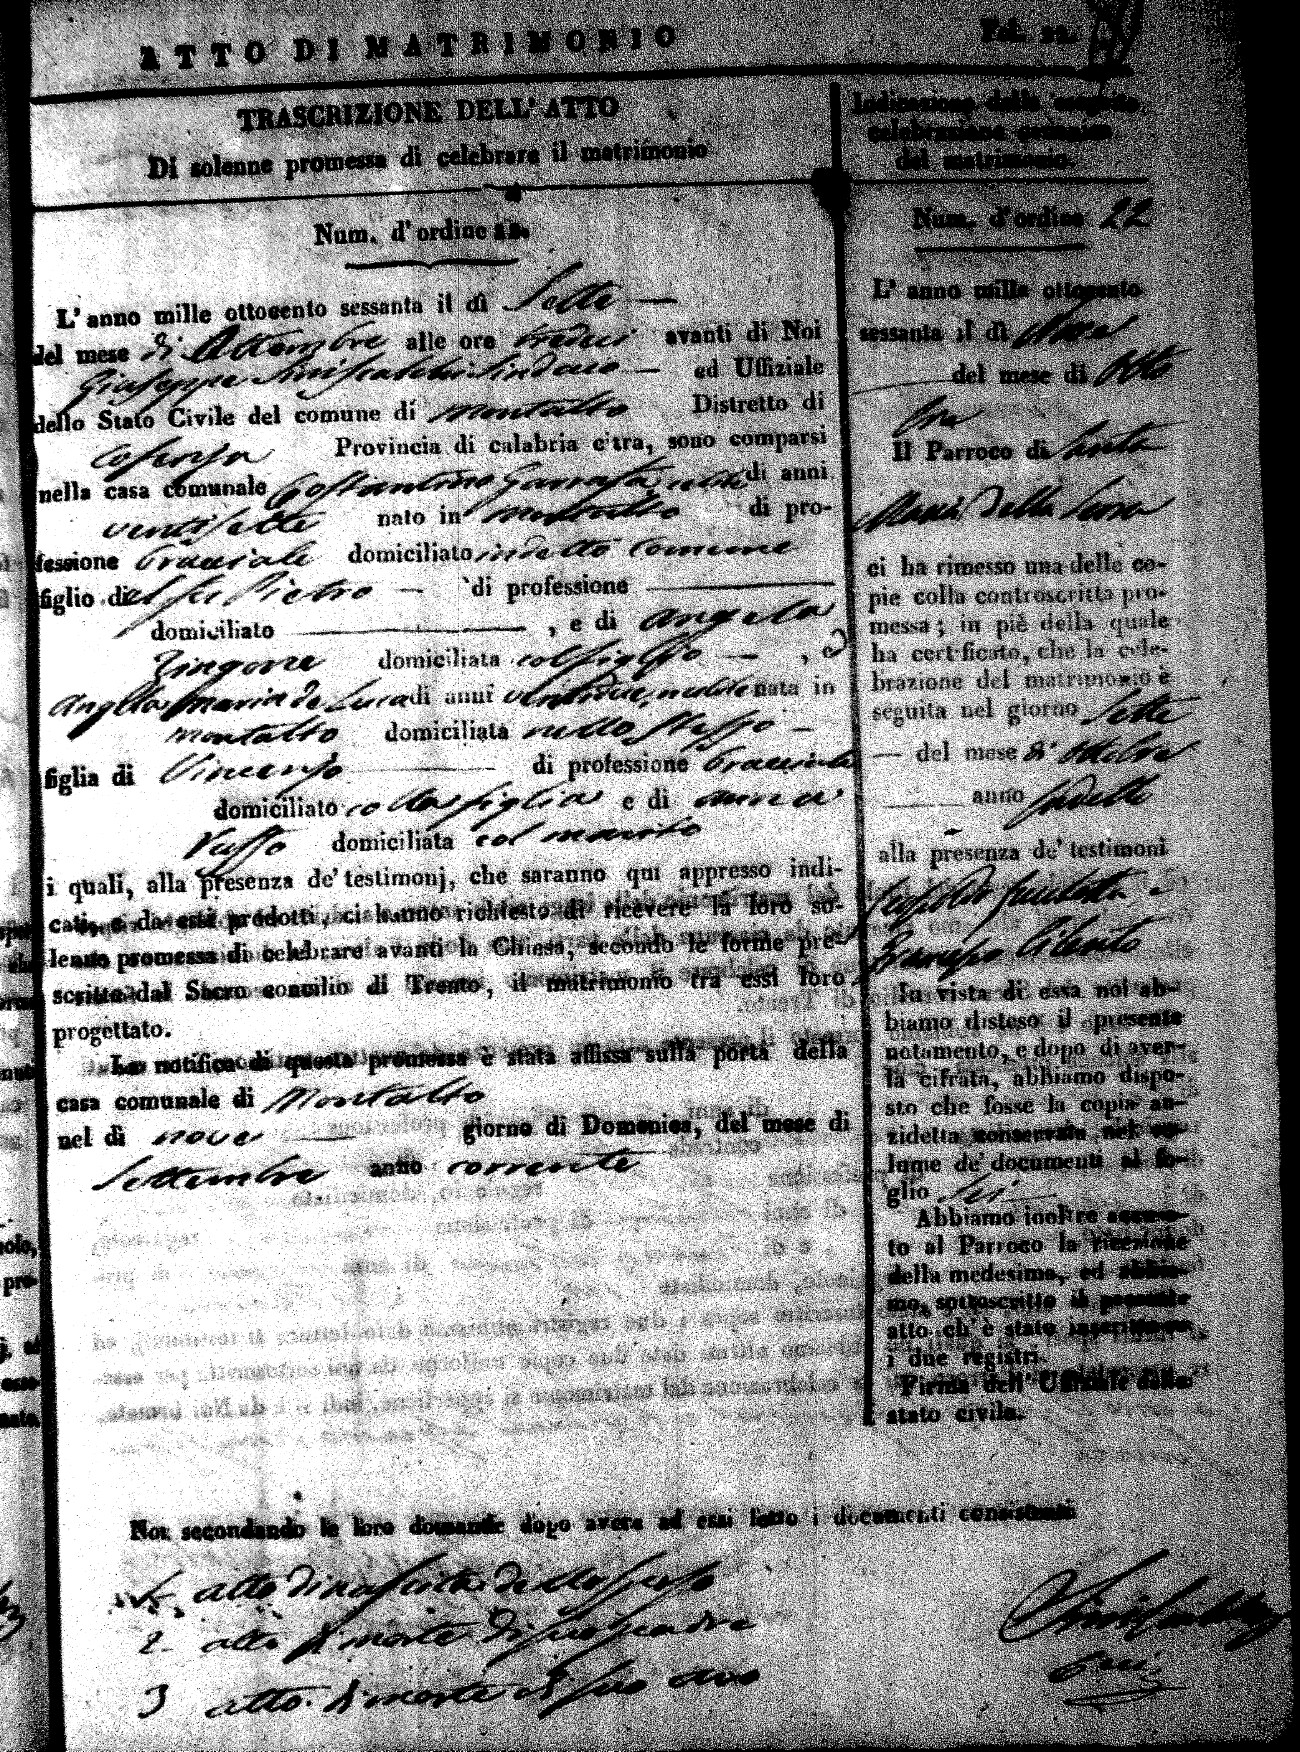 ATTO DI MATRIMONIO
TRASCRIZIONE DELL' ATTO
Di solenne promessa di celebrare il matrimonio
Num. d'ordine 22.
L' anno mille ottocento sessanta il dì Sette
del mese di Settembre alle ore tredici avanti di Noi
Giuseppe Sindaco ed Uffiziale
dello Stato Civile del comune di Montalto Distretto di
Cosenza Provincia di calabria citra, sono comparsi
nella casa comunale Costantino di anni
ventisette nato in Montalto di pro-
fessione bracciale domiciliato in detto Comune
figlio del fu Pietro di professione
domiciliato , e di Angela
Zingone domiciliata col figlio , e
Maria de Luca di anni nubile nata in
Montalto domiciliata nello stesso
figlia di Vincenzo di professione bracciale
domiciliato colla figlia e di
Russo domiciliata col marito
i quali, alla presenza de' testimonj, che saranno qui appresso indi-
cati, e da essi prodotti, ci hanno richiesto di ricevere la loro so-
lenne promessa di celebrare avanti la Chiesa, secondo le forme pre-
scritte dal Sacro concilio di Trento, il matrimonio tra essi loro
progettato.
La notifica di questa promessa è stata affissa sulla porta della
casa comunale di Montalto
nel dì nove giorno di Domenica, del mese di
Settembre anno corrente
Noi secondando le loro domande dopo avere ad essi letto i documenti consistenti
1. atto di nascita dello sposo
2. atto di morte di suo padre
3 atto di morte di suo avo
Indicazione della seguita
celebrazione canonica
del matrimonio.
Num. d'ordine 22
L' anno mille ottocento
sessanta il dì
del mese di Otto
bre
Il Parroco di Santa
Maria della Serra
ci ha rimesso una delle co-
pie colla controscritta pro-
messa; in piè della quale
ha certificato, che la cele-
brazione del matrimonio è
seguita nel giorno Sette
del mese di Ottobre
anno sudetto
alla presenza de' testimoni
In vista di essa noi ab-
biamo disteso il presente
notamento, e dopo di aver-
la cifrata, abbiamo dispo-
sto che fosse la copia an-
zidetta conservata nel vo-
lume de' documenti al fo-
glio Sei
Abbiamo inoltre accusa-
to al Parroco la ricezione
della medesima, ed abbia-
mo, sottoscritto il presente
atto ch' è stato
i due registri.
Firma dell' Uffiziale dello
stato civile.